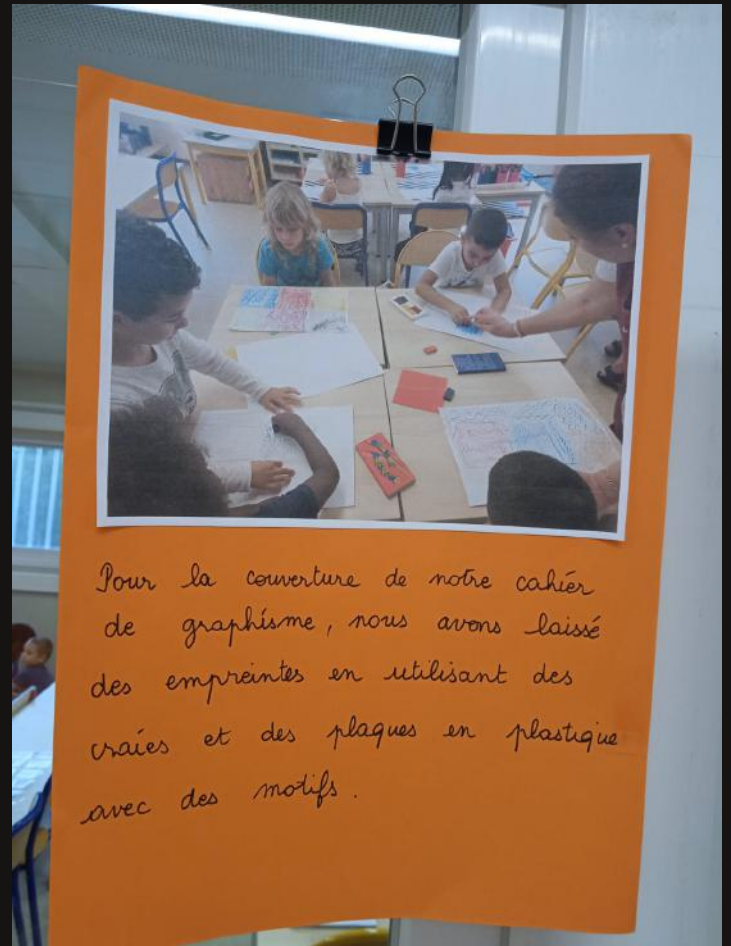 Pour la couverture de notre cahier
de graphisme, nous avons laissé
des empreintes en utilisant des
craies et des plaques en plastique
avec des motifs.